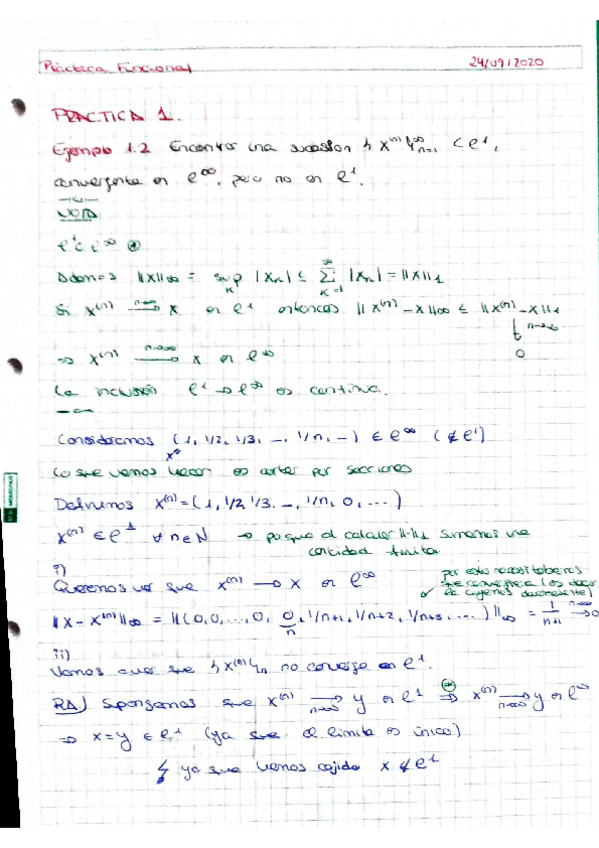 Práctica Funcional 24/09/2020
PRÁCTICA 1.
Ejemplo 1.2 Encontrar una sucesión {x⁽ⁿ⁾}ₙ₌₁^∞ ⊂ ℓ¹,
convergente en ℓ^∞, pero no en ℓ¹.
NOTA
ℓ¹ ⊂ ℓ^∞ ⊛
Además ‖x‖∞ = sup_K |xₙ| ≤ Σ_{K=1}^∞ |xₙ| = ‖x‖₁
Si x⁽ⁿ⁾ —n→∞→ x en ℓ¹ entonces ‖x⁽ⁿ⁾ - x‖∞ ≤ ‖x⁽ⁿ⁾ - x‖₁
↓ n→∞
0
⇒ x⁽ⁿ⁾ —n→∞→ x en ℓ^∞
La inclusión ℓ¹ → ℓ^∞ es continua.
Consideramos (1, 1/2, 1/3, ..., 1/n, ...) ∈ ℓ^∞ (∉ ℓ¹)
x"
Lo que vamos hacer es cortar por secciones
Definimos x⁽ⁿ⁾ = (1, 1/2, 1/3, ..., 1/n, 0, ...)
x⁽ⁿ⁾ ∈ ℓ¹ ∀ n ∈ N → porque al calcular ‖·‖₁ sumamos una
cantidad finita
i)
Queremos ver que x⁽ⁿ⁾ → x en ℓ^∞
por esto necesitábamos
que convergiera (es decir,
la cogemos decreciente)
‖x - x⁽ⁿ⁾‖∞ = ‖(0, 0, ..., 0, 0, 1/n+1, 1/n+2, 1/n+3, ...)‖∞ = 1/(n+1) —n→∞→ 0
n
ii)
Vamos a ver que {x⁽ⁿ⁾}ₙ no converge en ℓ¹.
RA) Supongamos que x⁽ⁿ⁾ —n→∞→ y en ℓ¹ ⊛⇒ x⁽ⁿ⁾ —n→∞→ y en ℓ^∞
⇒ x = y ∈ ℓ¹ (ya que el límite es único)
↯ ya que hemos cogido x ∉ ℓ¹